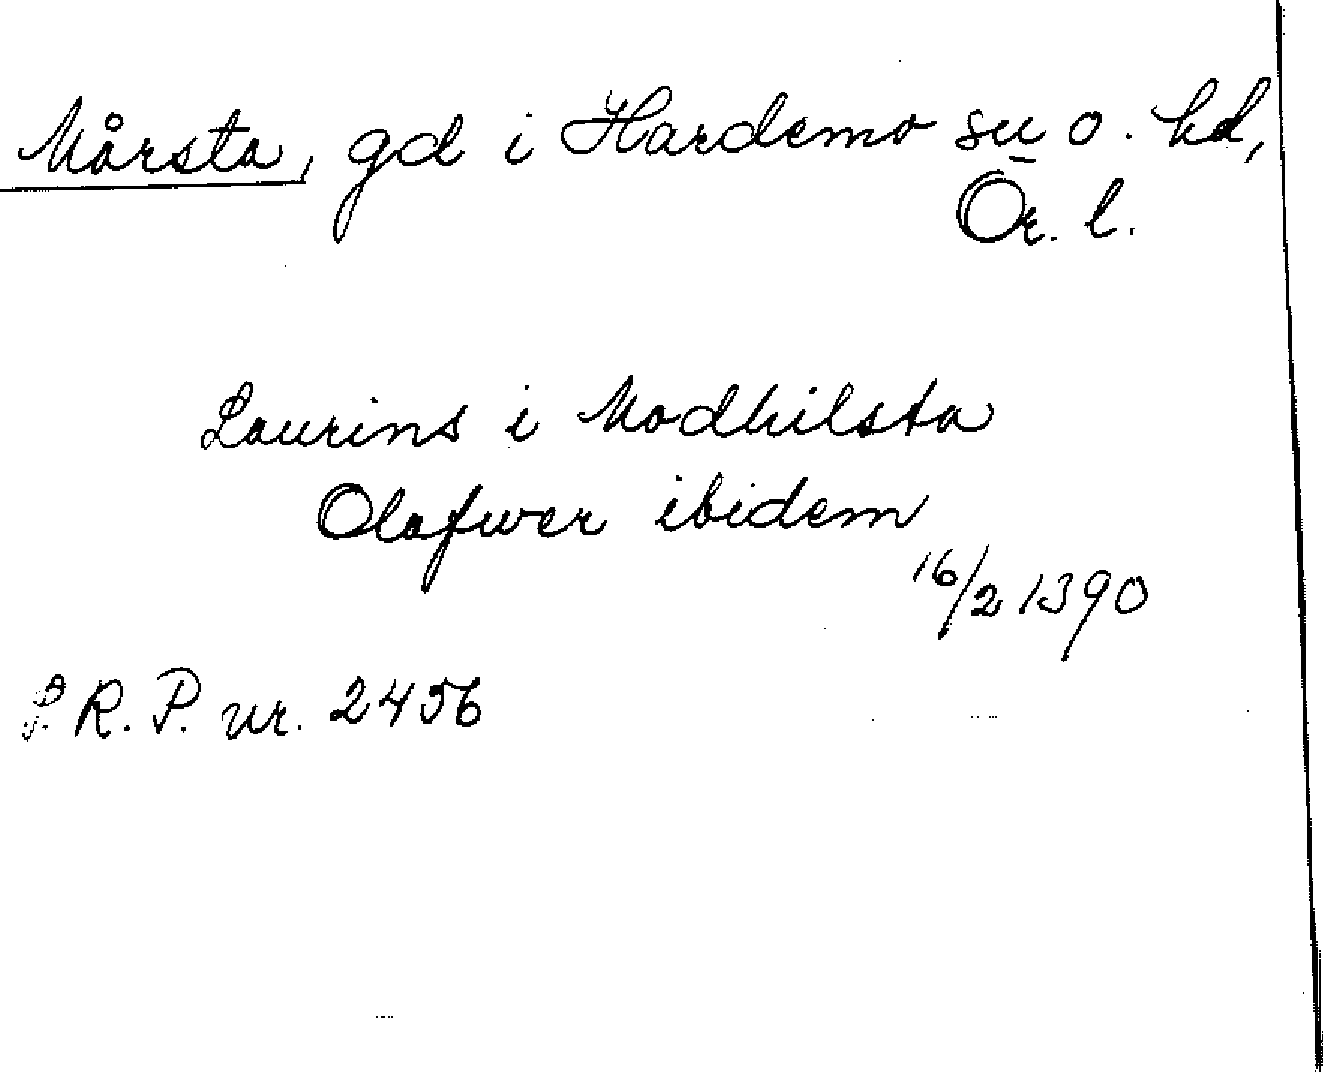 Mårsta, gd i Hardemo sn o. hd,
Ör. l.
Laurins i Modhilsta
Olafwer ibidem
16/2 1390
S. R. P. nr. 2456